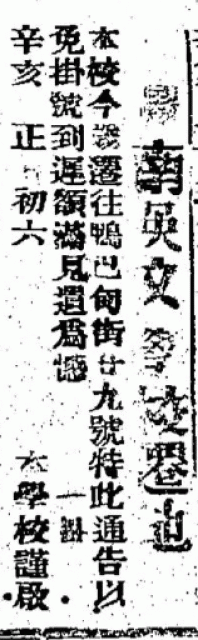 英文學校遷
本校今歲遷往鴨巴甸街廿九號特此通告以
免掛號到遲額滿見遺為憾 一
辛亥 正月初六 本學校謹啟